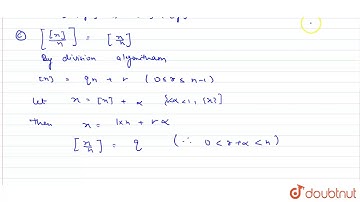 © [[x]/n] = [x/n]
By division algoritham
[x] = qn + r (0≤r≤n-1)
let x = [x] + α
then x = + r α
[x/n] = q (∵ 0<r+α<n)
doubtnut